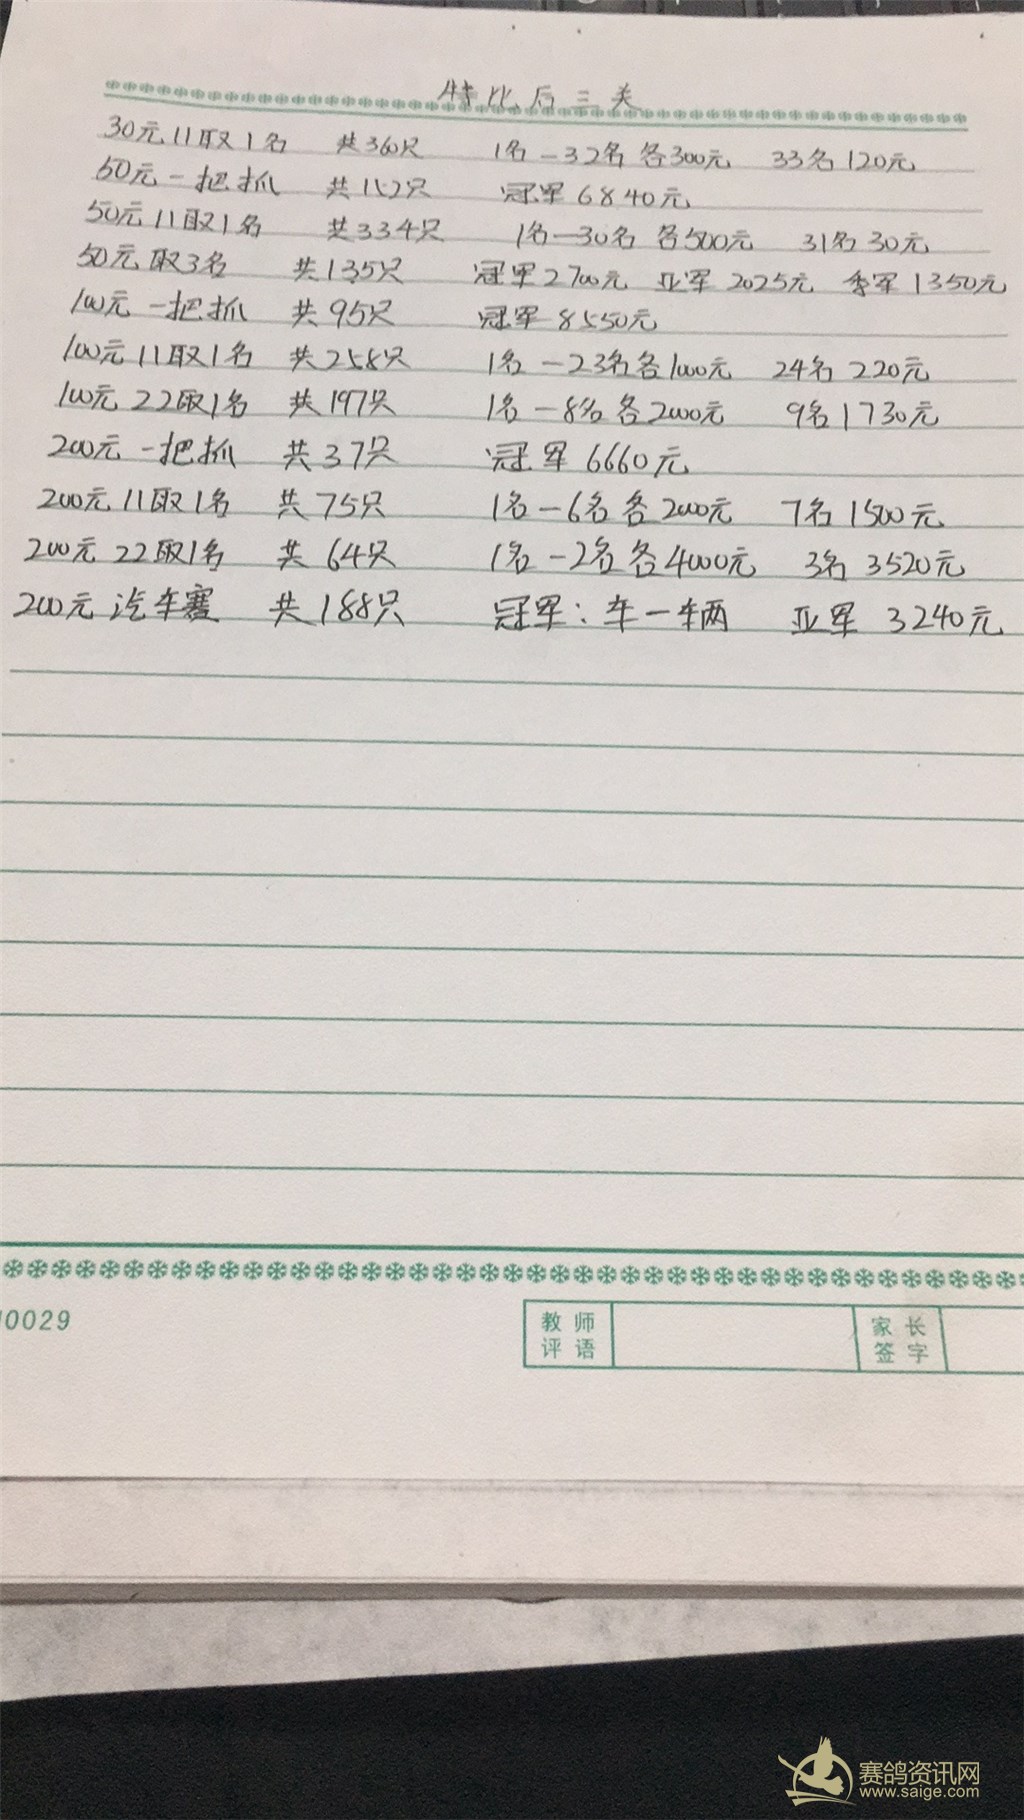 特比后三关
30元11取1名 共360只 1名-32名各300元 33名120元
50元一把抓 共152只 冠军6840元
50元11取1名 共334只 1名-30名 各500元 31名30元
50元取3名 共135只 冠军2700元 亚军2025元 季军1350元
100元一把抓 共95只 冠军8550元
100元11取1名 共258只 1名-23名各1000元 24名220元
100元22取1名 共197只 1名-8名各2000元 9名1730元
200元一把抓 共37只 冠军6660元
200元11取1名 共75只 1名-6名各2000元 7名1500元
200元22取1名 共64只 1名-2名各4000元 3名3520元
200元汽车赛 共188只 冠军:车一辆 亚军3240元
0029
教师评语
家长签字
赛鸽资讯网
www.saige.com